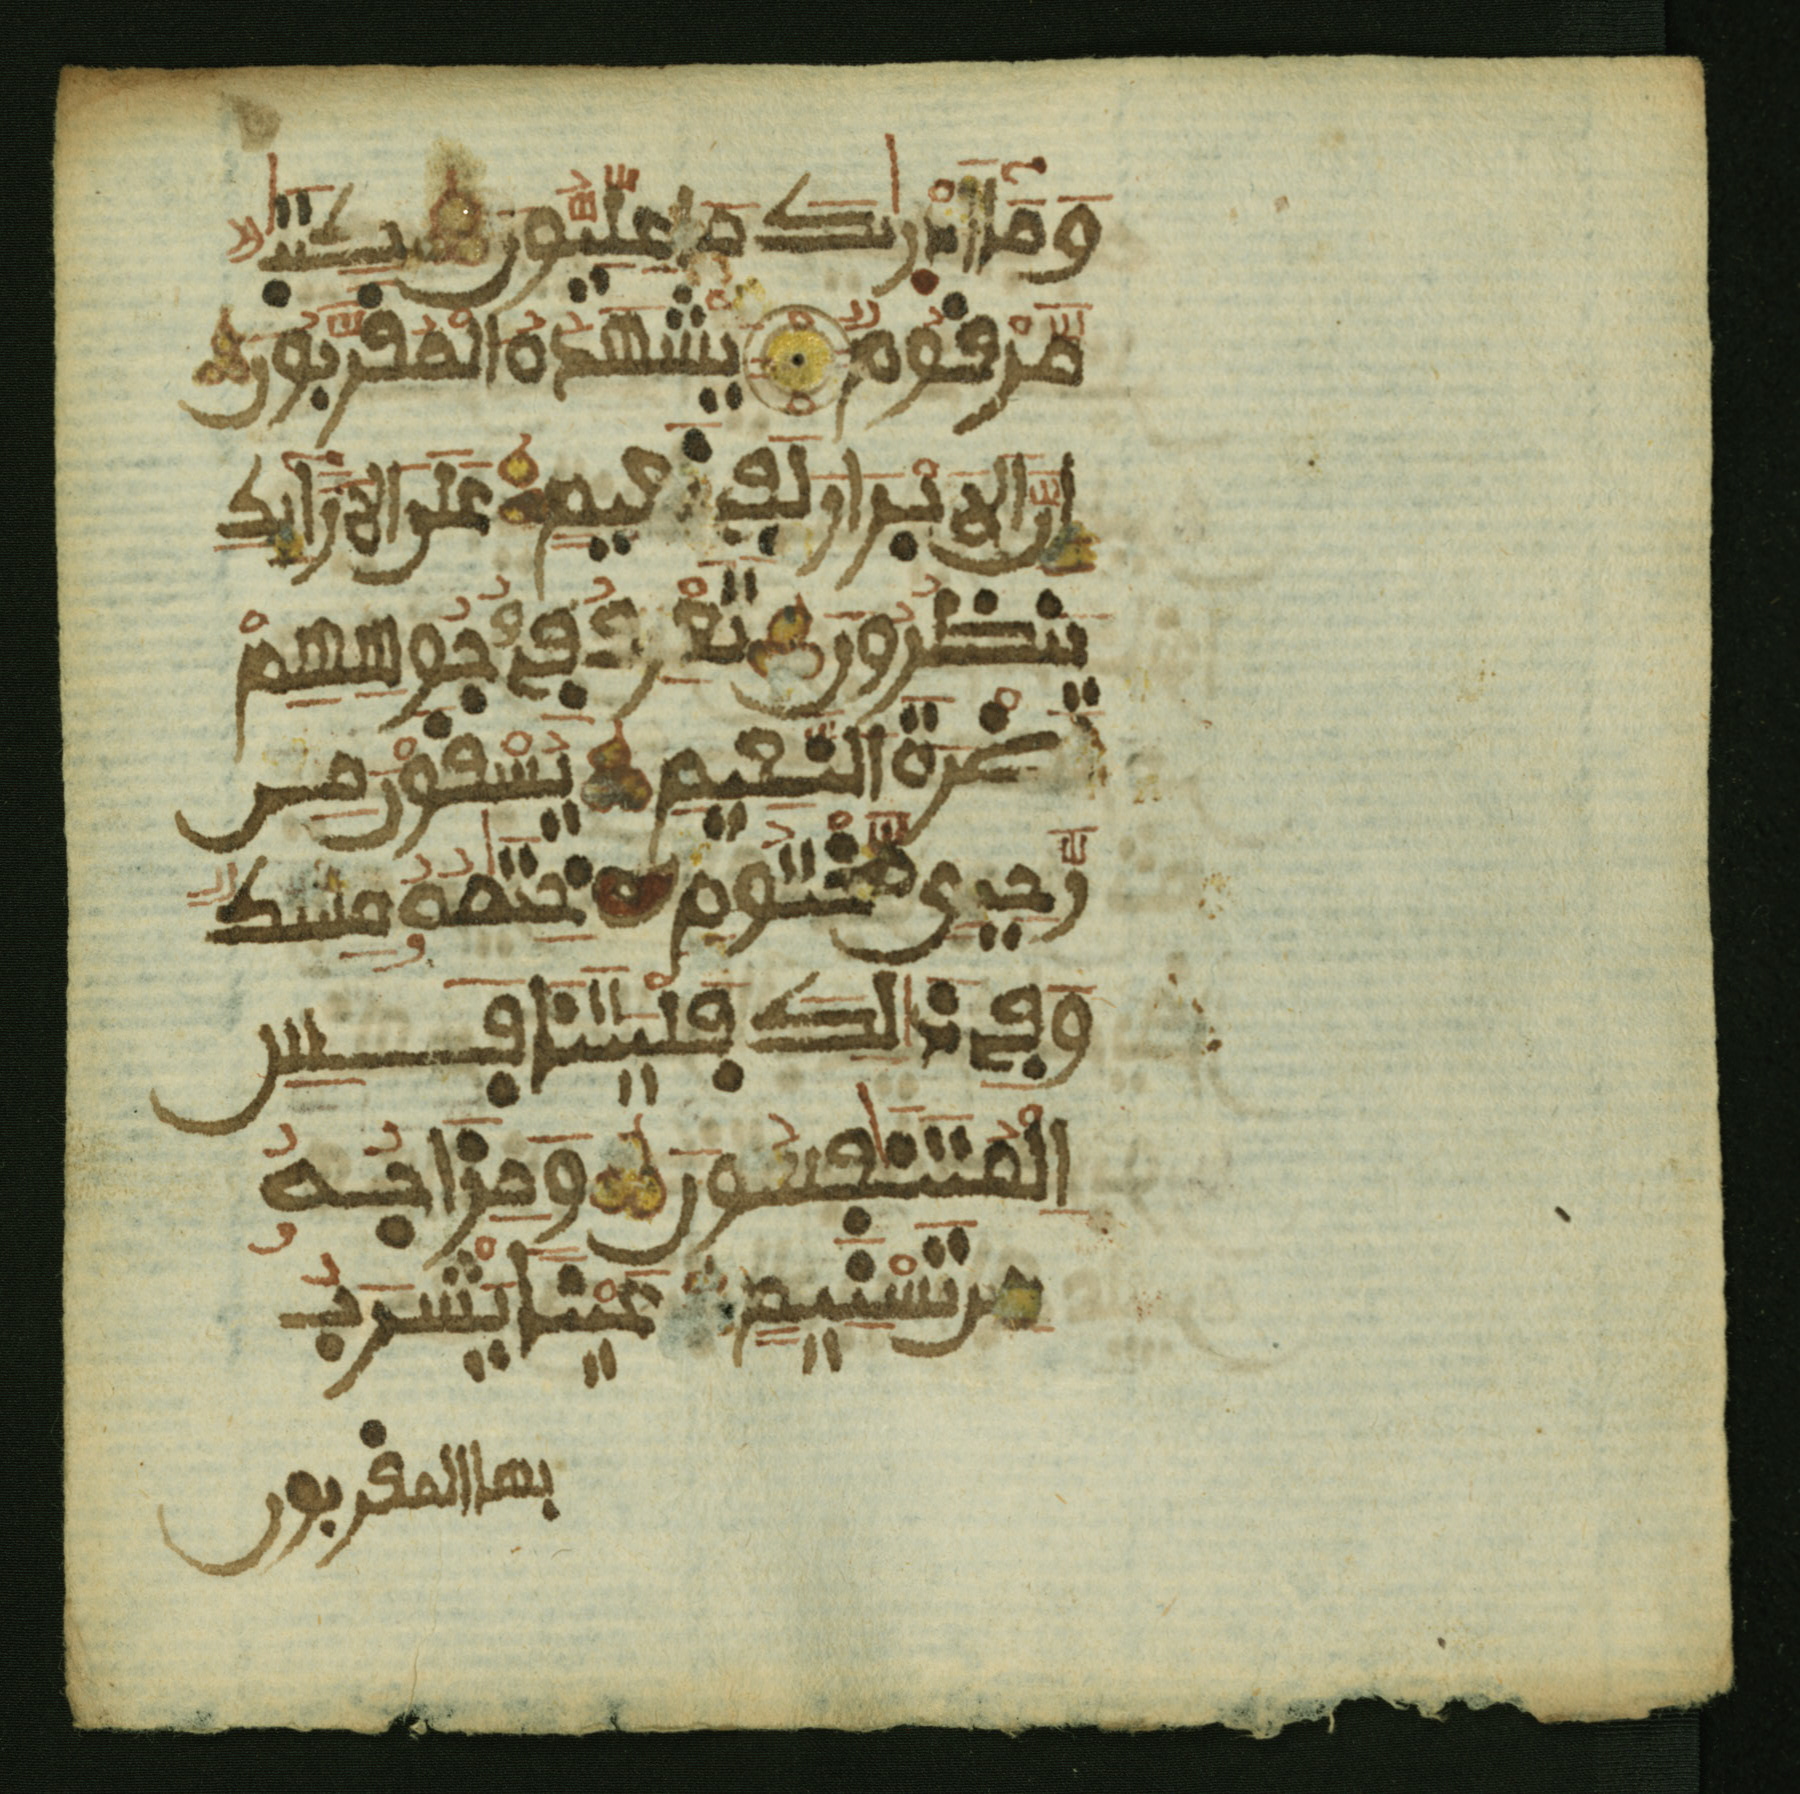 وَمَآ أَدْرٜىٰكَ مَا عِلِّيُّونَ كِتَٰبٌ
مَّرْفُومٌ يَشْهَدُهُ الْمُفَرَّبُونَ
إِنَّ الَابْرَارَ لَڢِے نَعِيمٍ عَلَى الَارَآيِكِ
يَنظُرُونَ تَعْرِڢُ ڢِے وُجُوهِهِمْ
نَضْرَةَ النَّعِيمِ يُسْفَوْنَ مِن
رَّحِيقٍ مَّخْتُومٍ خِتَٰمُهُۥ مِسْكٌ
وَڢِے ذَٰلِكَ ڢَلْيَتَنَاڢَسِ
الْمُتَنَٰڢِسُونَ وَمِزَاجُهُۥ
مِن تَسْنِيمٍ عَيْناً يَشْرَبُ
بها المفربون